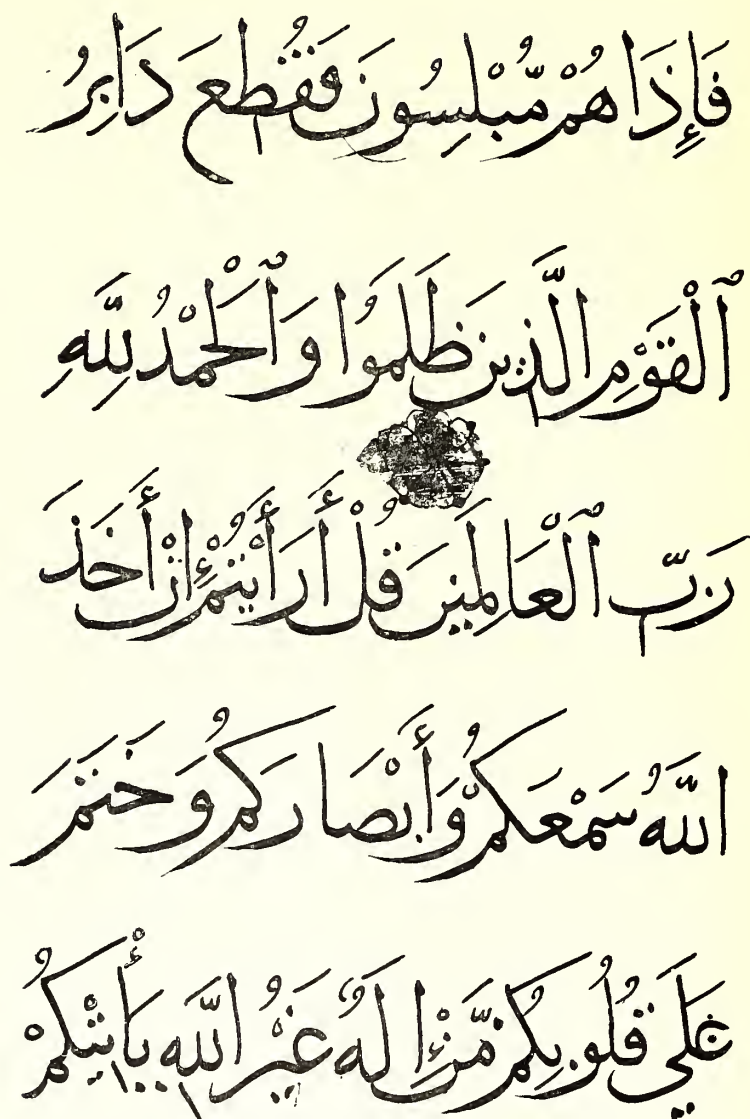 فَإِذَا هُمْ مُّبْلِسُونَ فَقُطِعَ دَابِرُ
ٱلْقَوْمِ الَّذِينَ ظَلَمُوا وَٱلْحَمْدُ لِلَّهِ
رَبِّ ٱلْعَالَمِينَ قُلْ أَرَأَيْتُمْ إِنْ أَخَذَ
اللَّهُ سَمْعَكُمْ وَأَبْصَارَكُمْ وَخَتَمَ
عَلَي قُلُوبِكُمْ مَّنْ إِلَهٌ غَيْرُ اللَّهِ يَأْتِيكُمْ